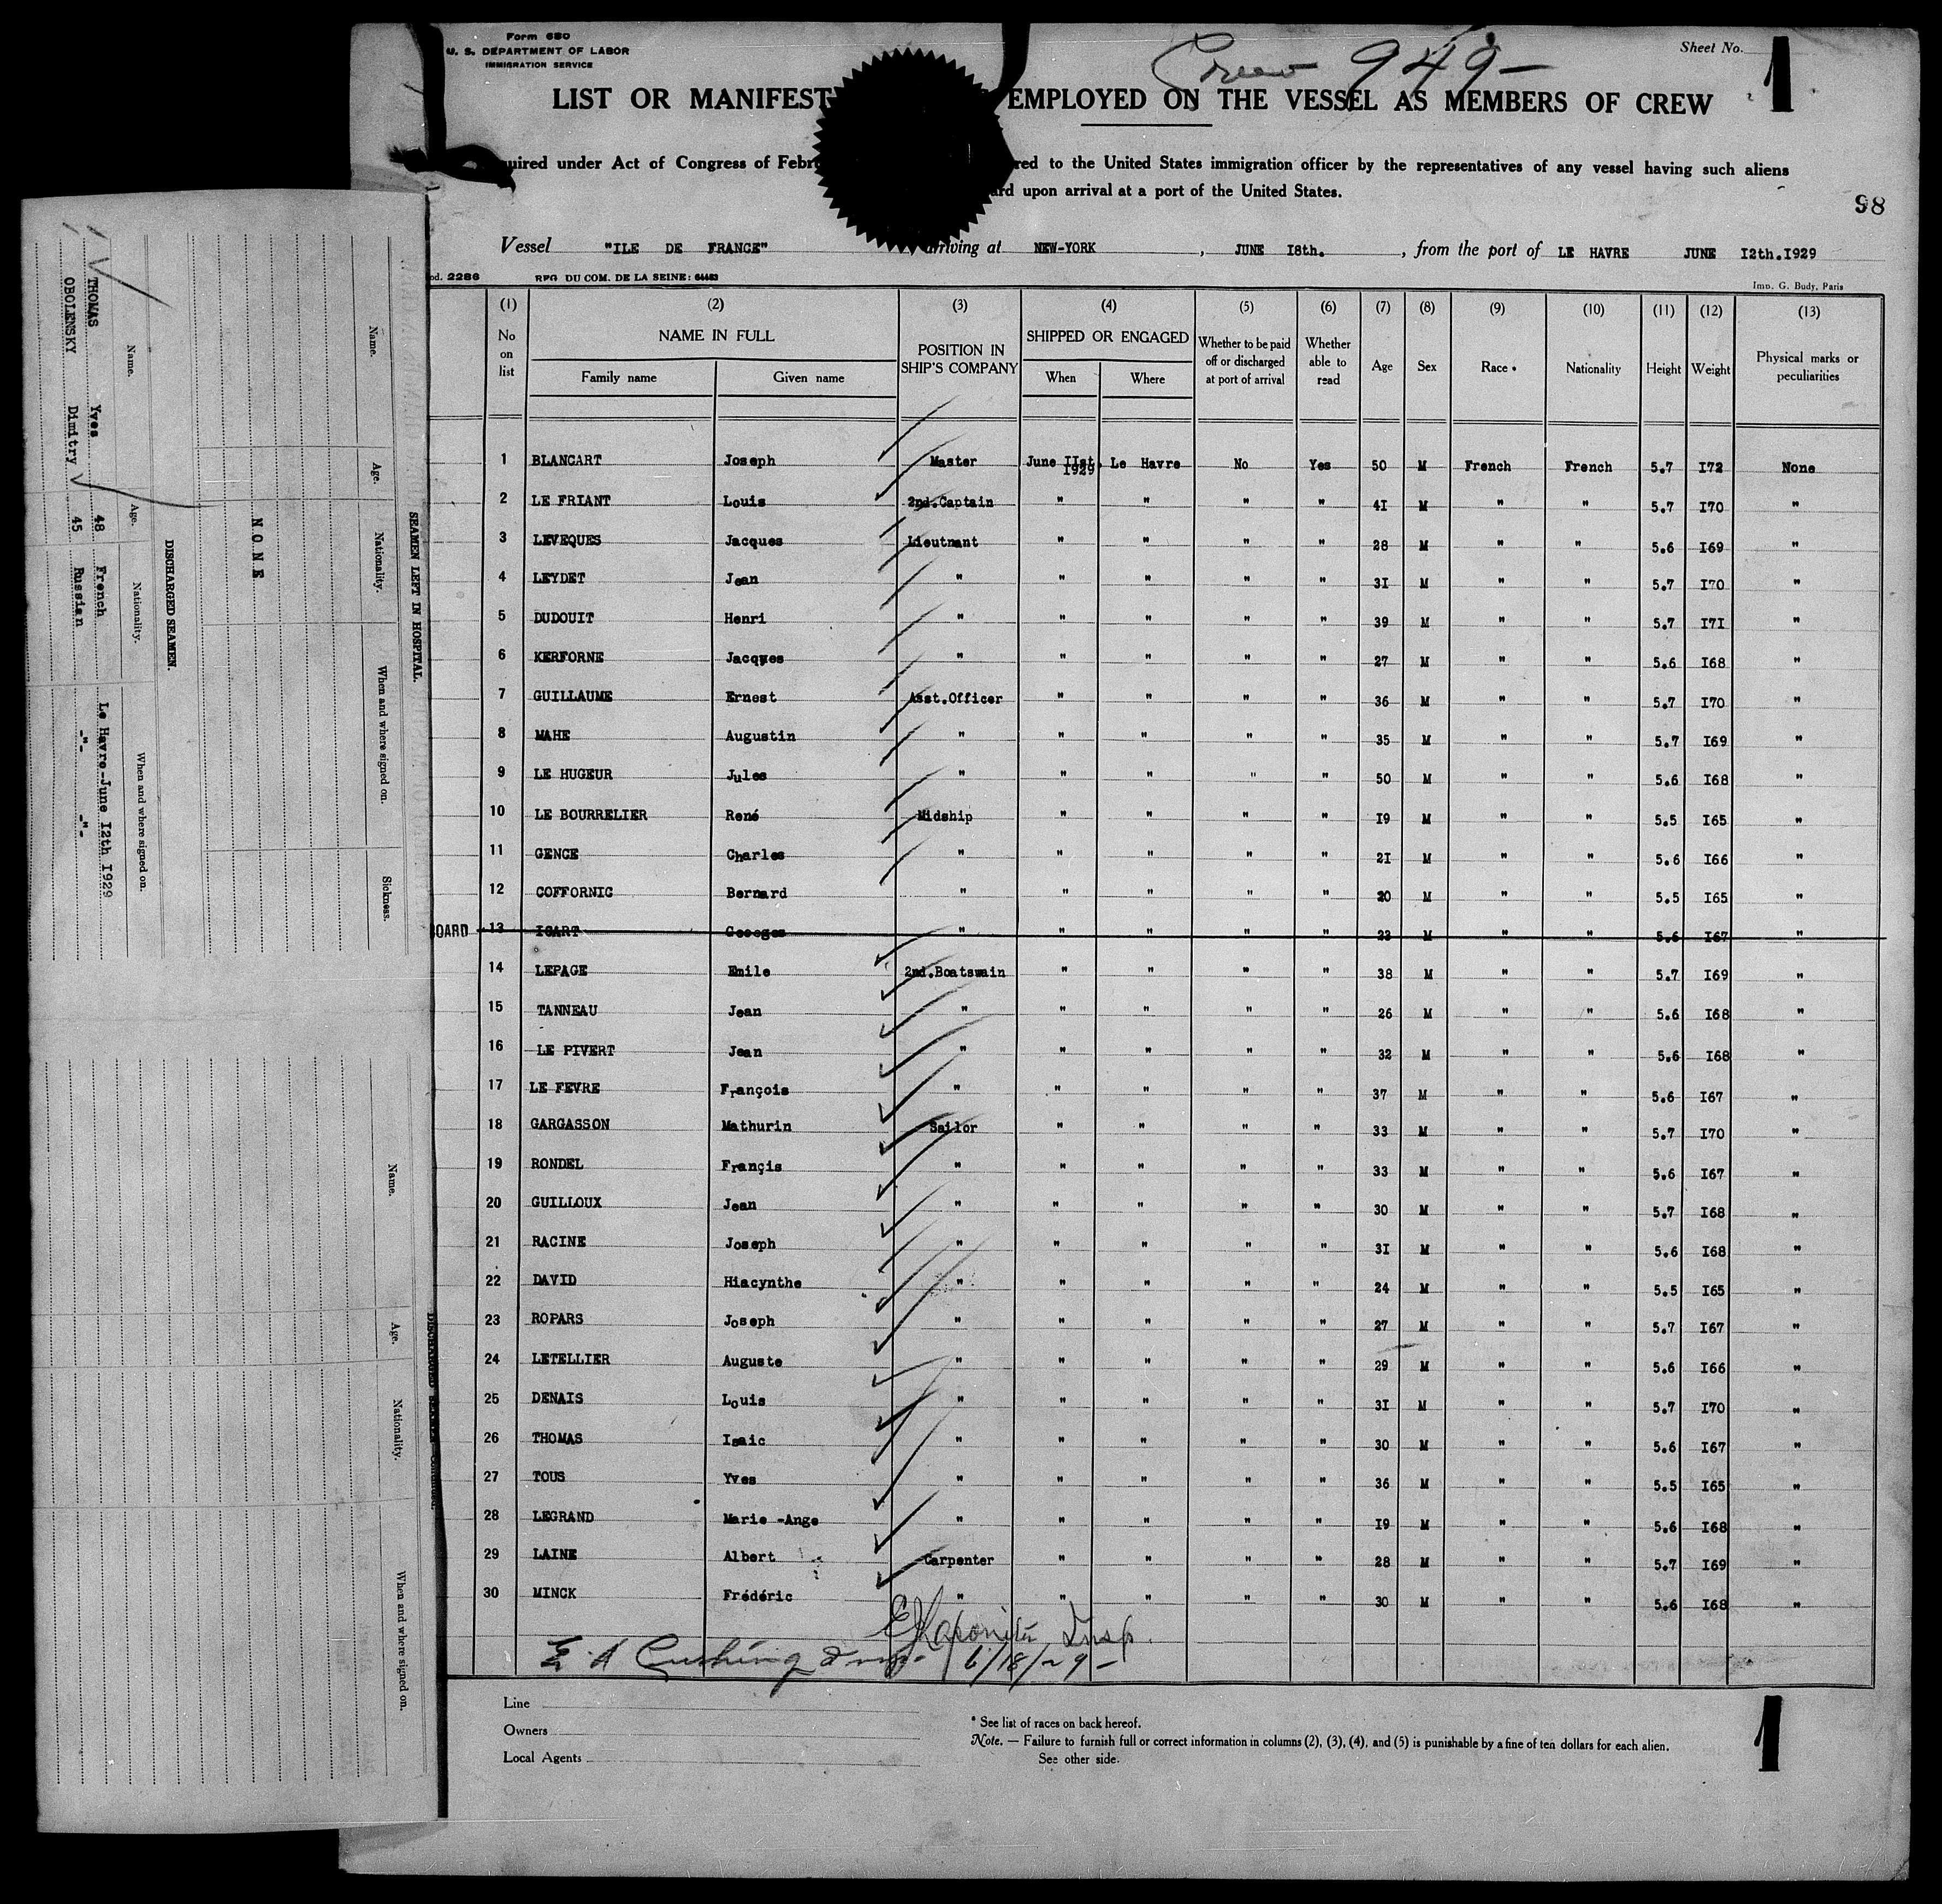 Form 680
U. S. DEPARTMENT OF LABOR
IMMIGRATION SERVICE
Crew 949-
Sheet No. 1
LIST OR MANIFEST EMPLOYED ON THE VESSEL AS MEMBERS OF CREW
under Act of Congress of to the United States immigration officer by the representatives of any vessel having such aliens
upon arrival at a port of the United States.
98
Vessel "ILE DE FRANCE" arriving at NEW-YORK , JUNE I8th. , from the port of LE HAVRE JUNE I2th.I929
2286 REG. DU COM. DE LA SEINE: 64483 Imp. G. Budy, Paris
(1) (2) (3) (4) (5) (6) (7) (8) (9) (10) (11) (12) (13)
No on list NAME IN FULL Family name Given name POSITION IN SHIP'S COMPANY SHIPPED OR ENGAGED When Where Whether to be paid off or discharged at port of arrival Whether able to read Age Sex Race * Nationality Height Weight Physical marks or peculiarities
1 BLANCART Joseph Master June IIst. 1929 Le Havre No Yes 50 M French French 5.7 I72 None
2 LE FRIANT Louis 2nd.Captain " " " " 4I M " " 5.7 I70 "
3 LEVEQUES Jacques Lieutnant " " " " 28 M " " 5.6 I69 "
4 LEYDET Jean " " " " " 3I M " " 5.7 I70 "
5 DUDOUIT Henri " " " " " 39 M " " 5.7 I7I "
6 KERFORNE Jacques " " " " " 27 M " " 5.6 I68 "
7 GUILLAUME Ernest Asst.Officer " " " " 36 M " " 5.7 I70 "
8 MAHE Augustin " " " " " 35 M " " 5.7 I69 "
9 LE HUGEUR Jules " " " " " 50 M " " 5.6 I68 "
10 LE BOURRELIER René Midship " " " " I9 M " " 5.5 I65 "
11 GENCE Charles " " " " " 2I M " " 5.6 I66 "
12 COFFORNIC Bernard " " " " " 20 M " " 5.5 I65 "
OARD 13 ICART Georges " " " " " 23 M " " 5.6 I67 "
14 LEPAGE Emile 2nd.Boatswain " " " " 38 M " " 5.7 I69 "
15 TANNEAU Jean " " " " " 26 M " " 5.6 I68 "
16 LE PIVERT Jean " " " " " 32 M " " 5.6 I68 "
17 LE FEVRE François " " " " " 37 M " " 5.6 I67 "
18 GARGASSON Mathurin Sailor " " " " 33 M " " 5.7 I70 "
19 RONDEL Françis " " " " " 33 M " " 5.6 I67 "
20 GUILLOUX Jean " " " " " 30 M " " 5.7 I68 "
21 RACINE Joseph " " " " " 3I M " " 5.6 I68 "
22 DAVID Hiacynthe " " " " " 24 M " " 5.5 I65 "
23 ROPARS Joseph " " " " " 27 M " " 5.7 I67 "
24 LETELLIER Auguste " " " " " 29 M " " 5.6 I66 "
25 DENAIS Louis " " " " " 3I M " " 5.7 I70 "
26 THOMAS Isaic " " " " " 30 M " " 5.6 I67 "
27 TOUS Yves " " " " " 36 M " " 5.5 I65 "
28 LEGRAND Marie -Ange " " " " " I9 M " " 5.6 I68 "
29 LAINE Albert Carpenter " " " " 28 M " " 5.7 I69 "
30 MINCK Frédéric " " " " " 30 M " " 5.6 I68 "
Insp.
E A Cushing Insp. 6/18/29-
Line
Owners
Local Agents
* See list of races on back hereof.
Note. — Failure to furnish full or correct information in columns (2), (3), (4), and (5) is punishable by a fine of ten dollars for each alien.
See other side.
1
SEAMEN LEFT IN HOSPITAL.
Name. Age. Nationality. When and where signed on. Sickness.
N O N E
DISCHARGED SEAMEN.
Name. Age. Nationality. When and where signed on.
THOMAS Yves 48 French Le Havre-June I2th I929
OBOLENSKY Dimitry 45 Russian -"- -"-
Name. Age. Nationality. When and where signed on.